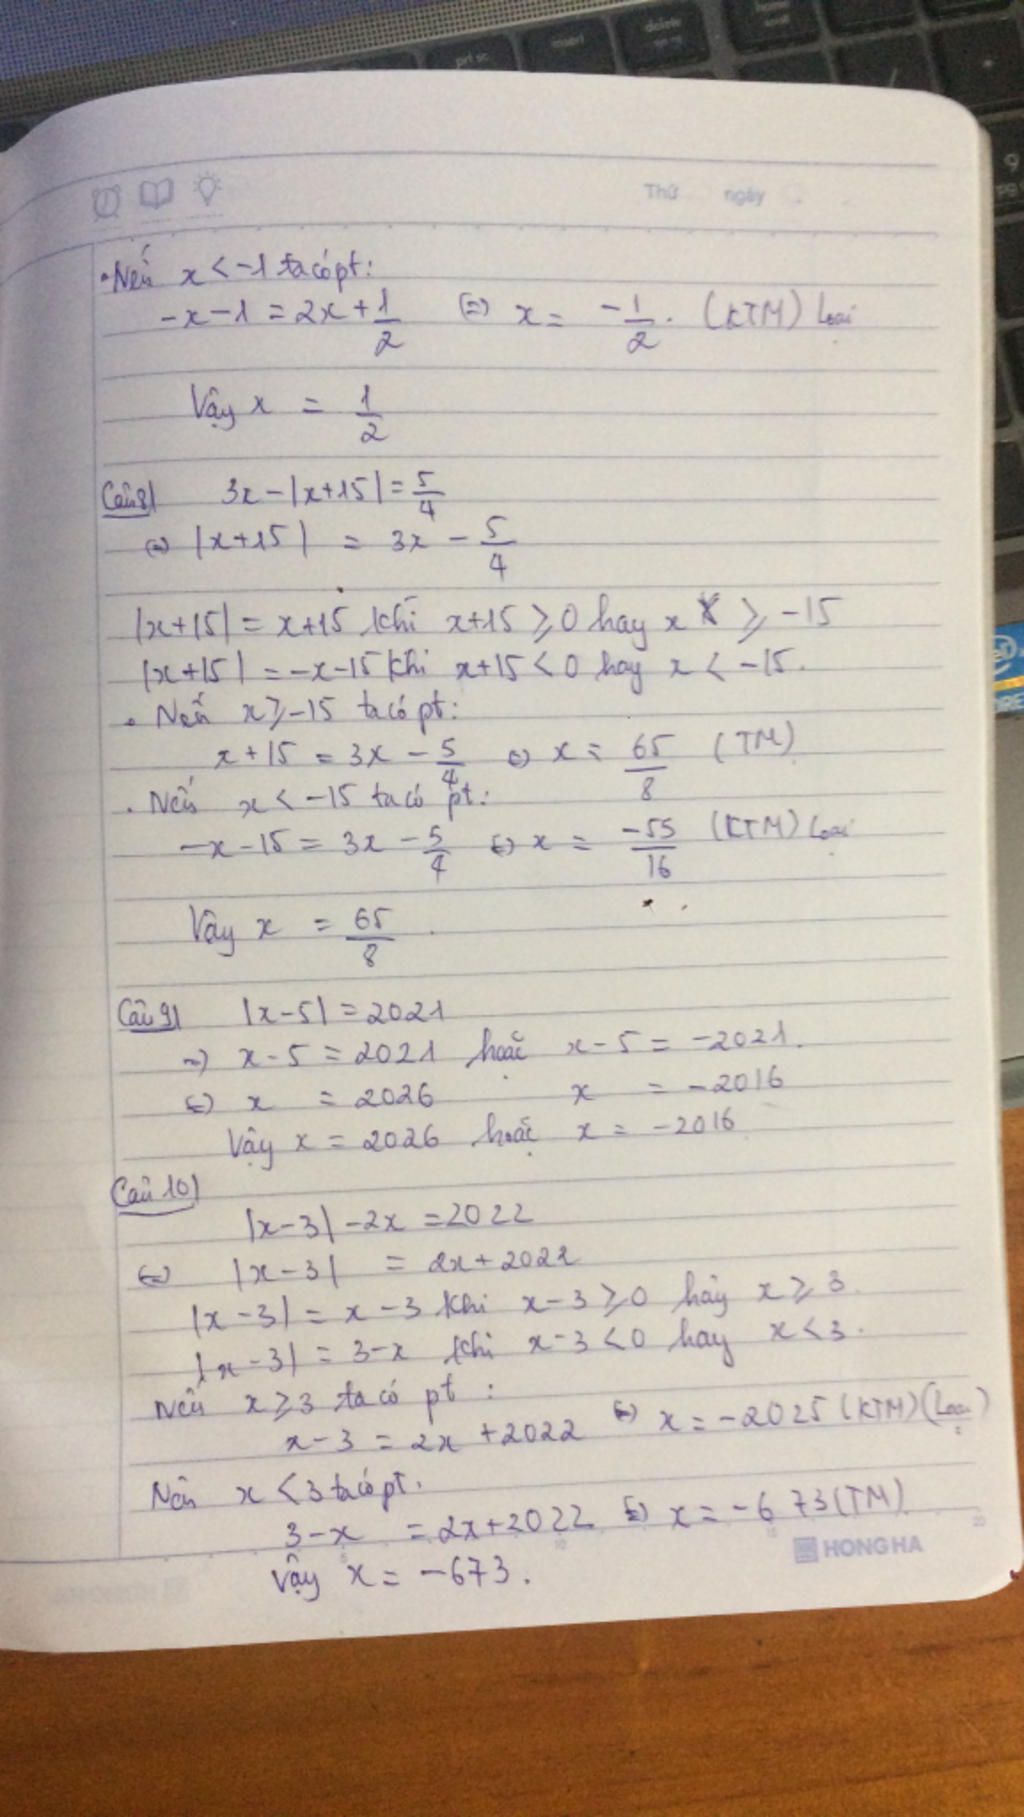 prt sc
insert
delete
home
Thứ ngày
• Nếu x < -1 ta có pt:
-x-1 = 2x + 1/2 (=) x = -1/2. (KTM) Loại
Vậy x = 1/2
Câu 8) 3x - |x+15| = 5/4
(=) |x+15| = 3x - 5/4
|x+15| = x+15 khi x+15 ⩾ 0 hay x ⩾ -15
|x+15| = -x-15 khi x+15 < 0 hay x < -15.
• Nếu x ⩾ -15 ta có pt:
x+15 = 3x - 5/4 (=) x = 65/8 (TM)
• Nếu x < -15 ta có pt:
-x-15 = 3x - 5/4 (=) x = -55/16 (KTM) Loại
Vậy x = 65/8.
Câu 9) |x-5| = 2021
=) x-5 = 2021 hoặc x-5 = -2021.
(=) x = 2026 x = -2016
Vậy x = 2026 hoặc x = -2016
Câu 10)
|x-3| -2x = 2022
(=) |x-3| = 2x+2022
|x-3| = x-3 khi x-3 ⩾ 0 hay x ⩾ 3.
|x-3| = 3-x khi x-3 < 0 hay x < 3.
Nếu x ⩾ 3 ta có pt:
x-3 = 2x+2022 (=) x = -2025 (KTM) (Loại)
Nếu x < 3 ta có pt.
3-x = 2x+2022 (=) x = -673 (TM)
Vậy x = -673.
5 10 15 20
HONG HA